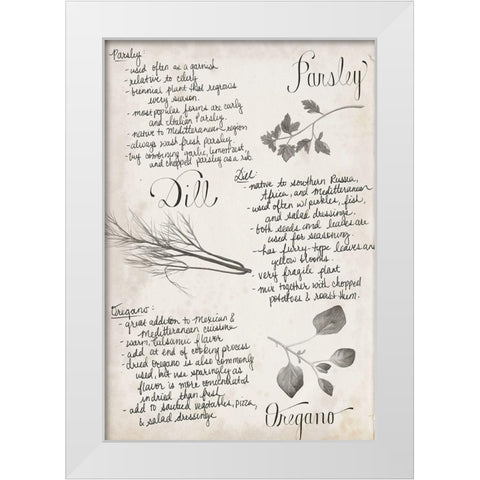 Parsley:
- used often as a garnish
- relative to celery
- biennial plant that regrows
every season.
- most popular forms are curly
and Italian Parsley.
- native to Mediterranean region
- always wash fresh parsley.
- try combining garlic, lemon zest,
and chopped parsley as a rub.
Parsley
Dill
Dill:
- native to southern Russia,
Africa, and Mediterranean
- used often w/pickles, fish,
and salad dressings.
- both seeds and leaves are
used for seasoning.
- has furry-type leaves and
yellow blooms.
- very fragile plant
- mix together with chopped
potatoes & roast them.
Oregano:
- great addition to Mexican &
Mediterranean cuisine
- warm, balsamic flavor
- add at end of cooking process
- dried oregano is also commonly
used, but use sparingly as
flavor is more concentrated
in dried than fresh.
- add to sauteed vegetables, pizza,
& salad dressings
Oregano